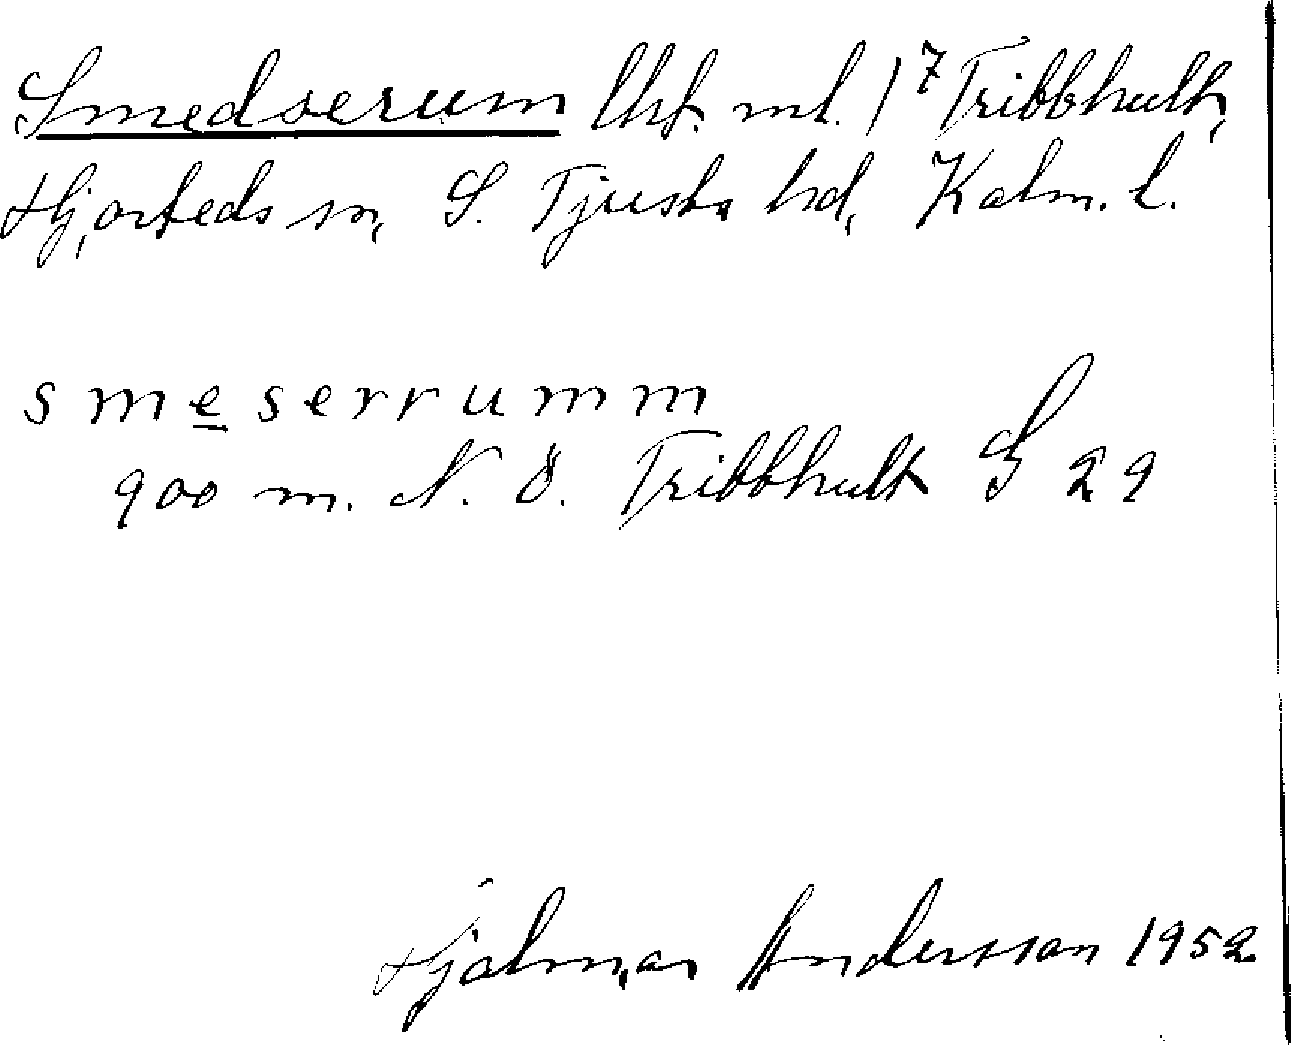 Smedserum lht. ml. 1⁷ Tribbhult,
Hjorteds sn, S. Tjusts hd, Kalm. l.
smeserrumm
900 m. N. Ö. Tribbhult S 29
Hjalmar Andersson 1952